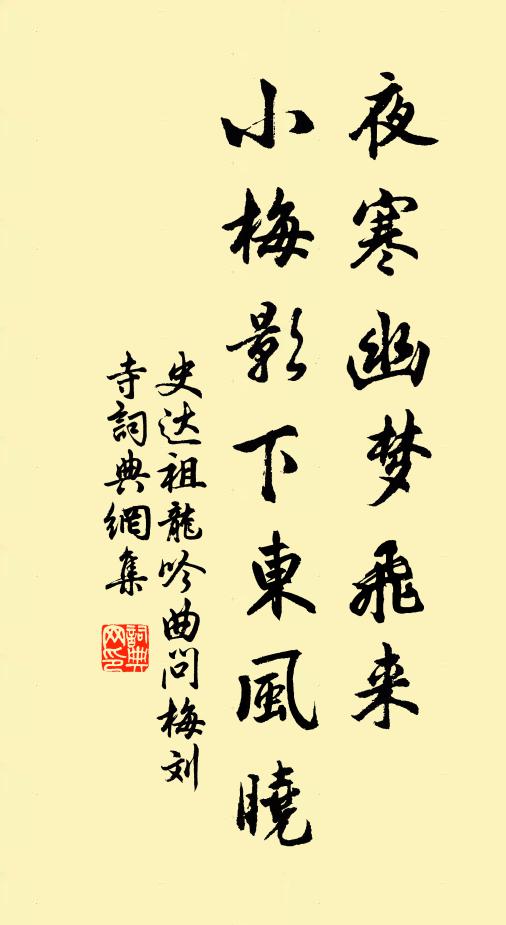 夜寒幽梦飛来
小梅影下東風曉
史达祖龍吟曲问梅刘
寺詞典網集
詞典網印